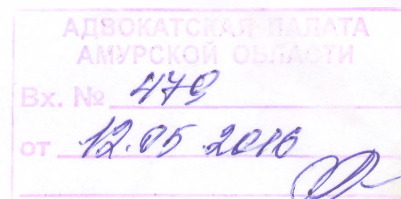 АДВОКАТСКАЯ ПАЛАТА
АМУРСКОЙ ОБЛАСТИ
Вх. № 479
от 12.05 2016